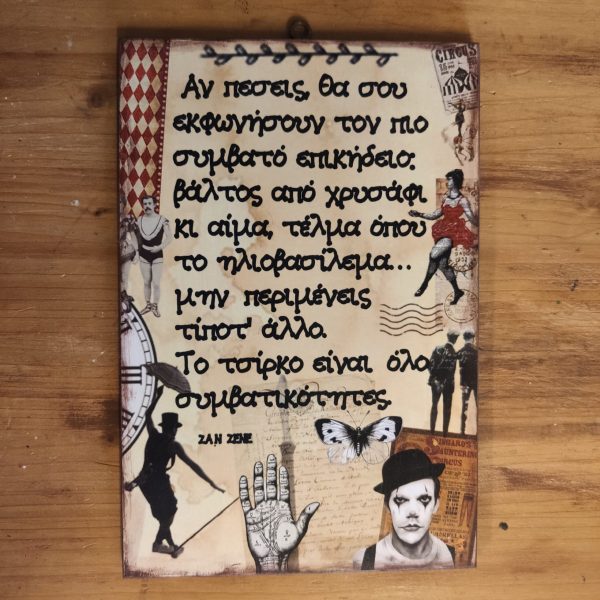 CIRCUS
Αν πεσεις, θα σου
εκφωνήσουν τον πιο
συμβατό επικήδειο:
βάλτος από χρυσάφι
κι αίμα, τέλμα όπου
το ηλιοβασίλεμα...
μην περιμένεις
τίποτ' άλλο.
Το τσίρκο είναι όλο
συμβατικότητες.
ΖΑΝ ΖΕΝΕ
CIRCUS